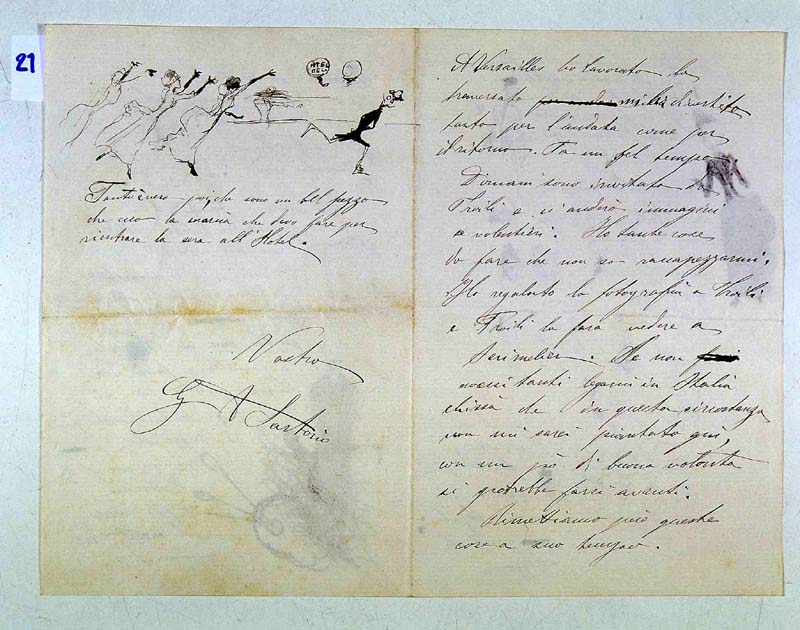 21
HOTEL
DE LA
Tant'è vero poiché sono un bel pezzo
che uso la marcia che devo fare per
rientrare la sera all'Hotel.
Vostro
G A Sartorio
A Versailles ho lavorato la
traversata mi ha divertito
tanto per l'andata come per
il ritorno. Fa un bel tempo
Domani sono invitato da
Troili e ci andrò immagini
se volentieri. Ho tante cose
da fare che non so raccapezzarmi.
Ho regalato la fotografia a Troili
e Troili la farà vedere a
Se non
avessi tanti legami in Italia
chissà che in questa circostanza
non mi sarei piantato qui,
con un pò di buona volontà
si potrebbe farsi avanti.
Rimettiamo però queste
cose a suo tempo.